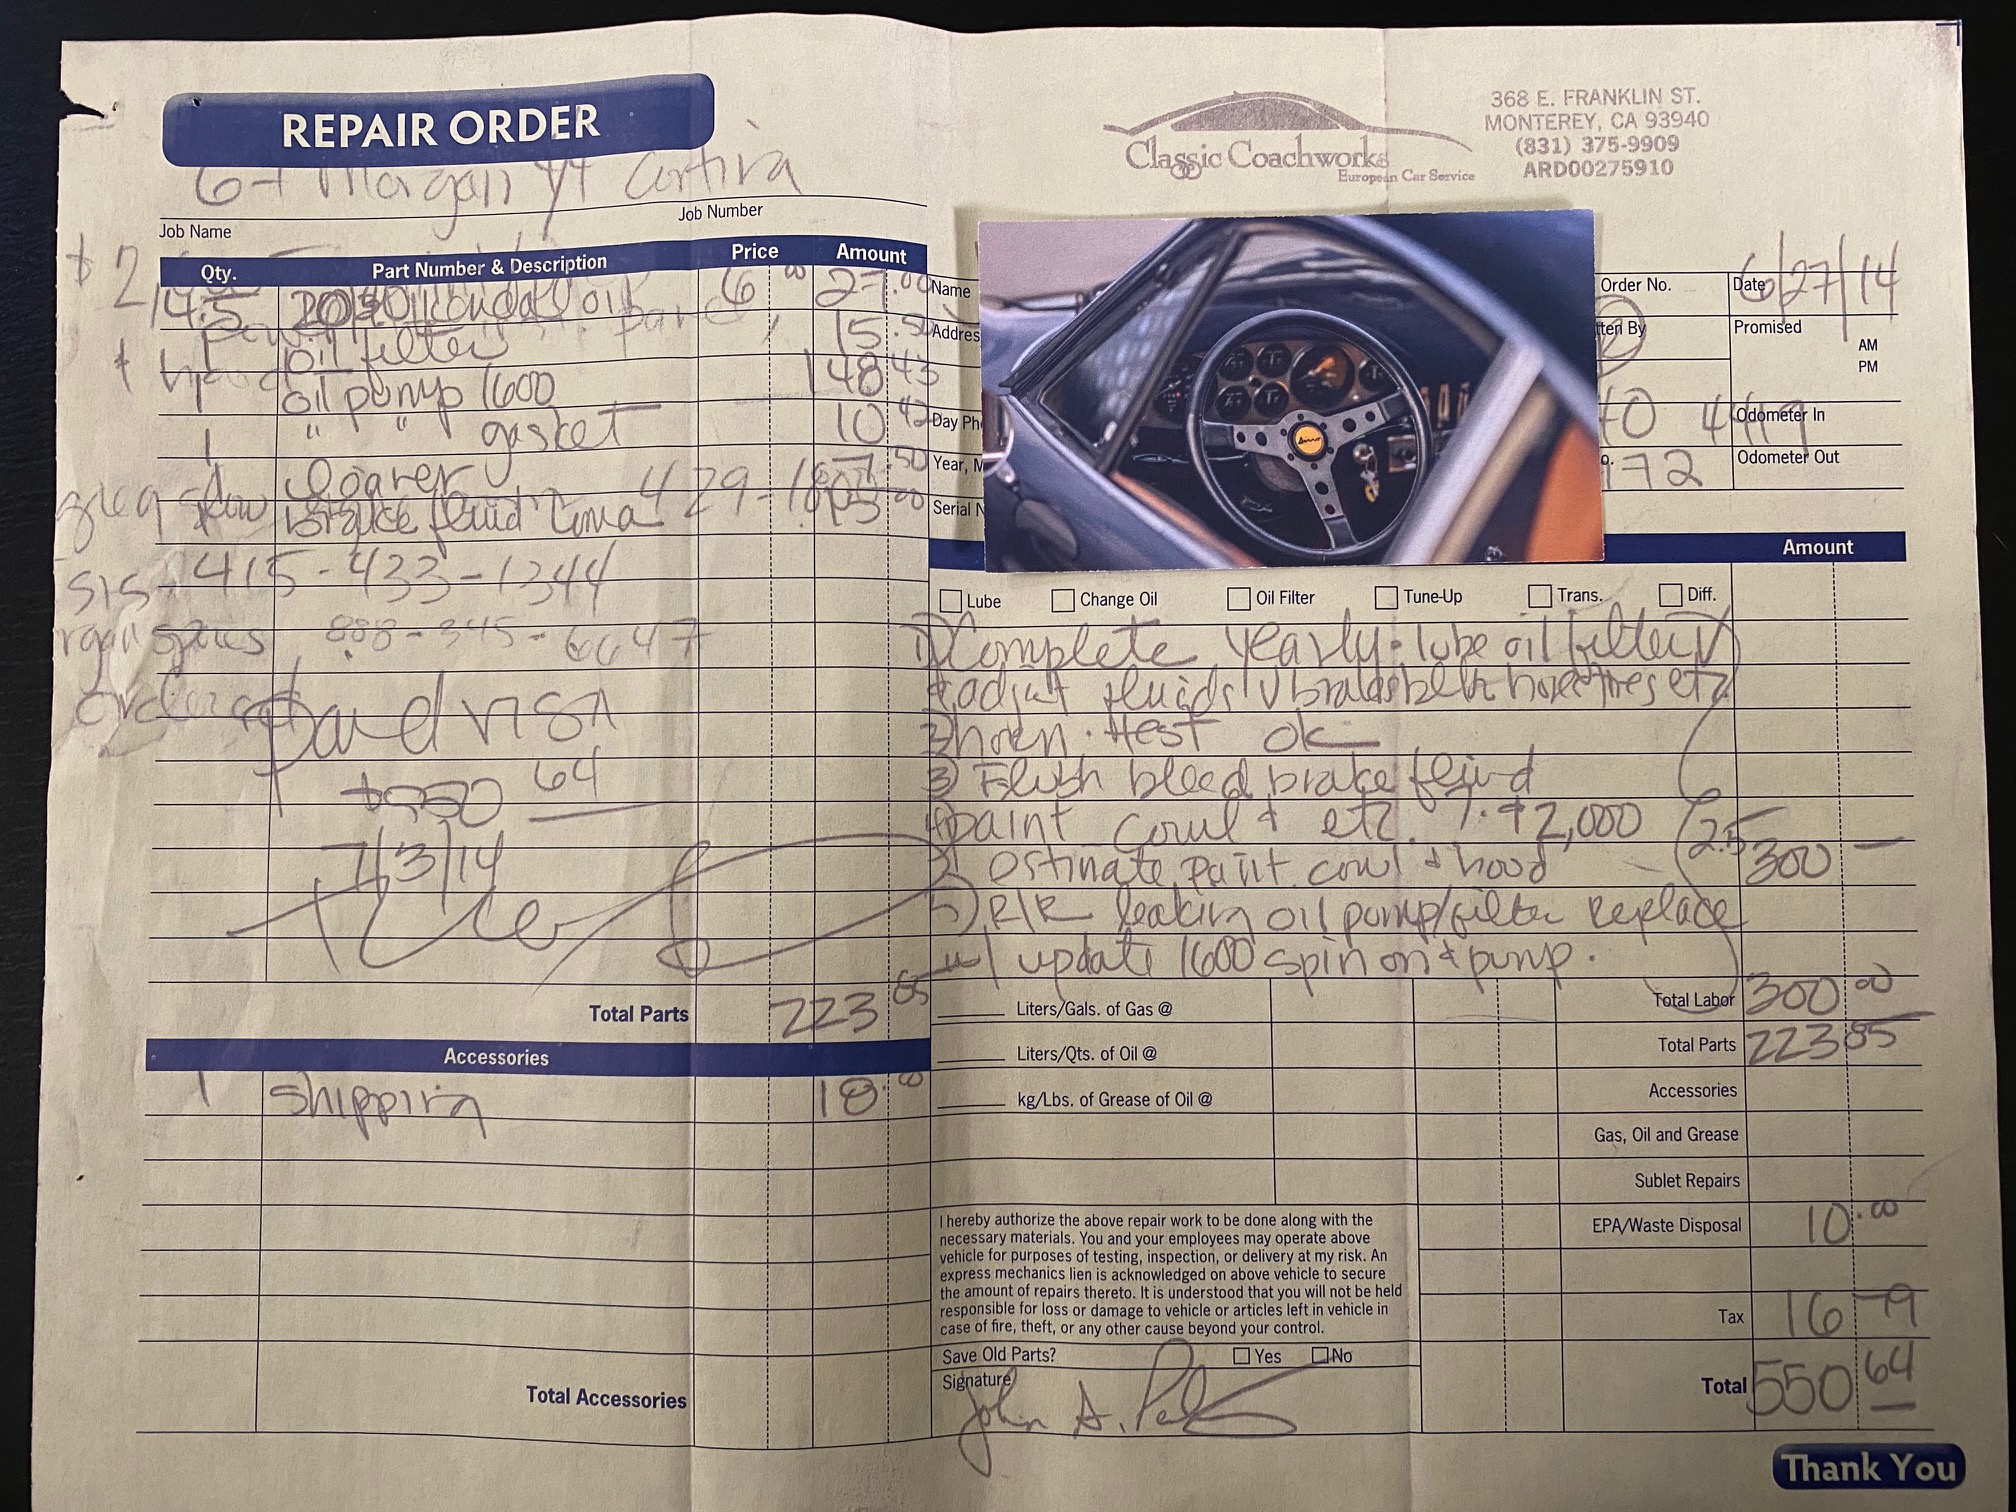 REPAIR ORDER
Classic Coachworks
European Car Service
368 E. FRANKLIN ST.
MONTEREY, CA 93940
(831) 375-9909
ARD00275910
Morgan 4/4
Job Name
Job Number
Qty. Part Number & Description Price Amount
4.5 oil 6.00 27.00
1 oil filter 15.50
1 oil pump 1600 148.43
1 " " gasket 10.42
1 7.50
1 brake fluid 15.00
429-
415-433-1344
888-345-6647
$550 64
7/3/14
Total Parts 223 85
Accessories
1 shipping 18.00
Total Accessories
Name
Addres
Day Ph
Year, M
Serial N
Order No.
Date 6/27/14
tten By
Promised
AM
PM
Odometer In
Odometer Out
172
Amount
Lube Change Oil Oil Filter Tune-Up Trans. Diff.
1) Complete yearly. lube oil filter
& adjust fluids etc
2) horn. test ok
3) Flush bleed brake fluid
4) paint cowl & etc. $2,000
estimate paint cowl & hood 2.5 300 —
5) R/R leaking oil pump/filter Replace
w/ update 1600 spin on & pump.
Liters/Gals. of Gas @
Liters/Qts. of Oil @
kg/Lbs. of Grease of Oil @
Total Labor 300 00
Total Parts 223 85
Accessories
Gas, Oil and Grease
Sublet Repairs
EPA/Waste Disposal 10.00
Tax 16 79
Total 550 64
I hereby authorize the above repair work to be done along with the
necessary materials. You and your employees may operate above
vehicle for purposes of testing, inspection, or delivery at my risk. An
express mechanics lien is acknowledged on above vehicle to secure
the amount of repairs thereto. It is understood that you will not be held
responsible for loss or damage to vehicle or articles left in vehicle in
case of fire, theft, or any other cause beyond your control.
Save Old Parts? Yes No
Signature
John A.
Thank You